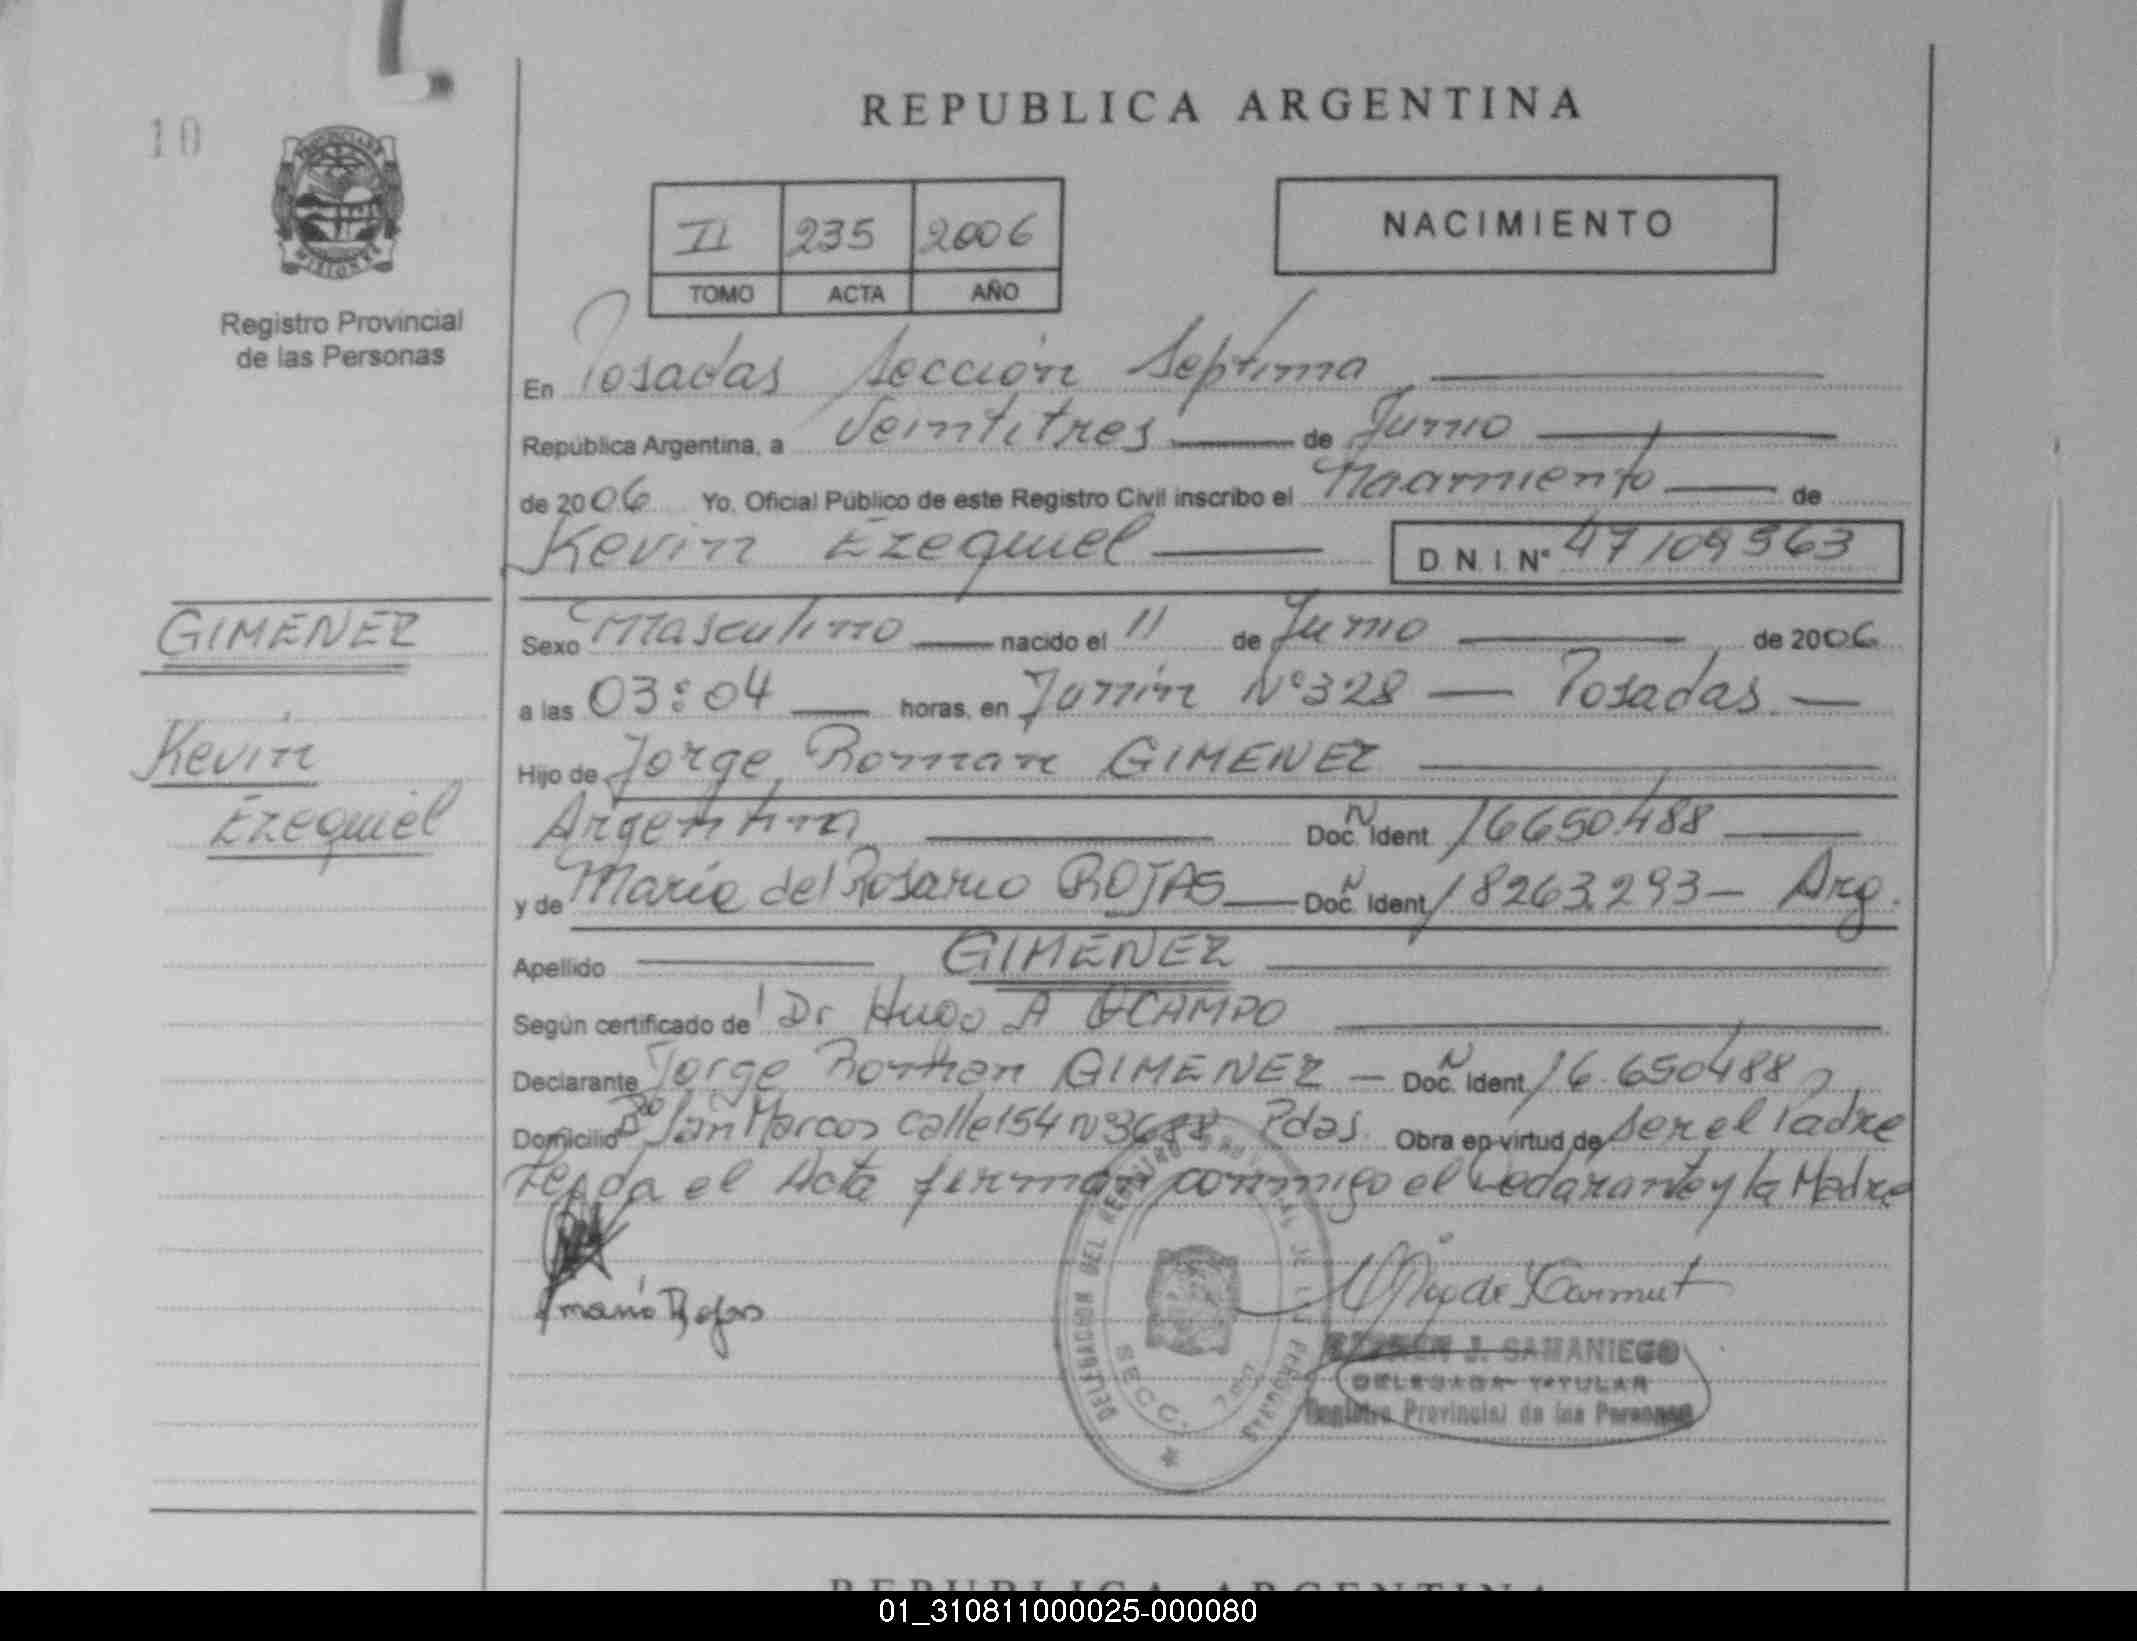 10
REPUBLICA ARGENTINA
NACIMIENTO
II 235 2006
TOMO ACTA AÑO
Registro Provincial
de las Personas
En Posadas Sección Septima
República Argentina, a Veintitres de Junio
de 2006 Yo, Oficial Público de este Registro Civil inscribo el Nacimiento de
Kevin Ezequiel D.N.I. Nº 47109363
GIMENEZ
Kevin
Ezequiel
Sexo Masculino nacido el 11 de Junio de 2006
a las 03:04 horas, en Junín Nº 328 — Posadas —
Hijo de Jorge Roman GIMENEZ
Argentina Doc. Ident. N 16650488
y de María del Rosario ROJAS Doc. Ident. N 18263.293 — Arg.
Apellido GIMENEZ
Según certificado de Dr Hugo A OCAMPO
Declarante Jorge Roman GIMENEZ — Doc. Ident. N 16.650488
Domicilio Bº San Marcos calle 154 Nº 3688 Pdas. Obra en virtud de ser el Padre
Leída el Acta firman conmigo el Declarante y la Madre
maria Rojas
DELEGACION DEL REGISTRO PROVINCIAL DE LAS PERSONAS
SECC. 7ma
J. SAMANIEGO
DELEGADA TITULAR
Registro Provincial de las Personas
REPUBLICA ARGENTINA
01_310811000025-000080